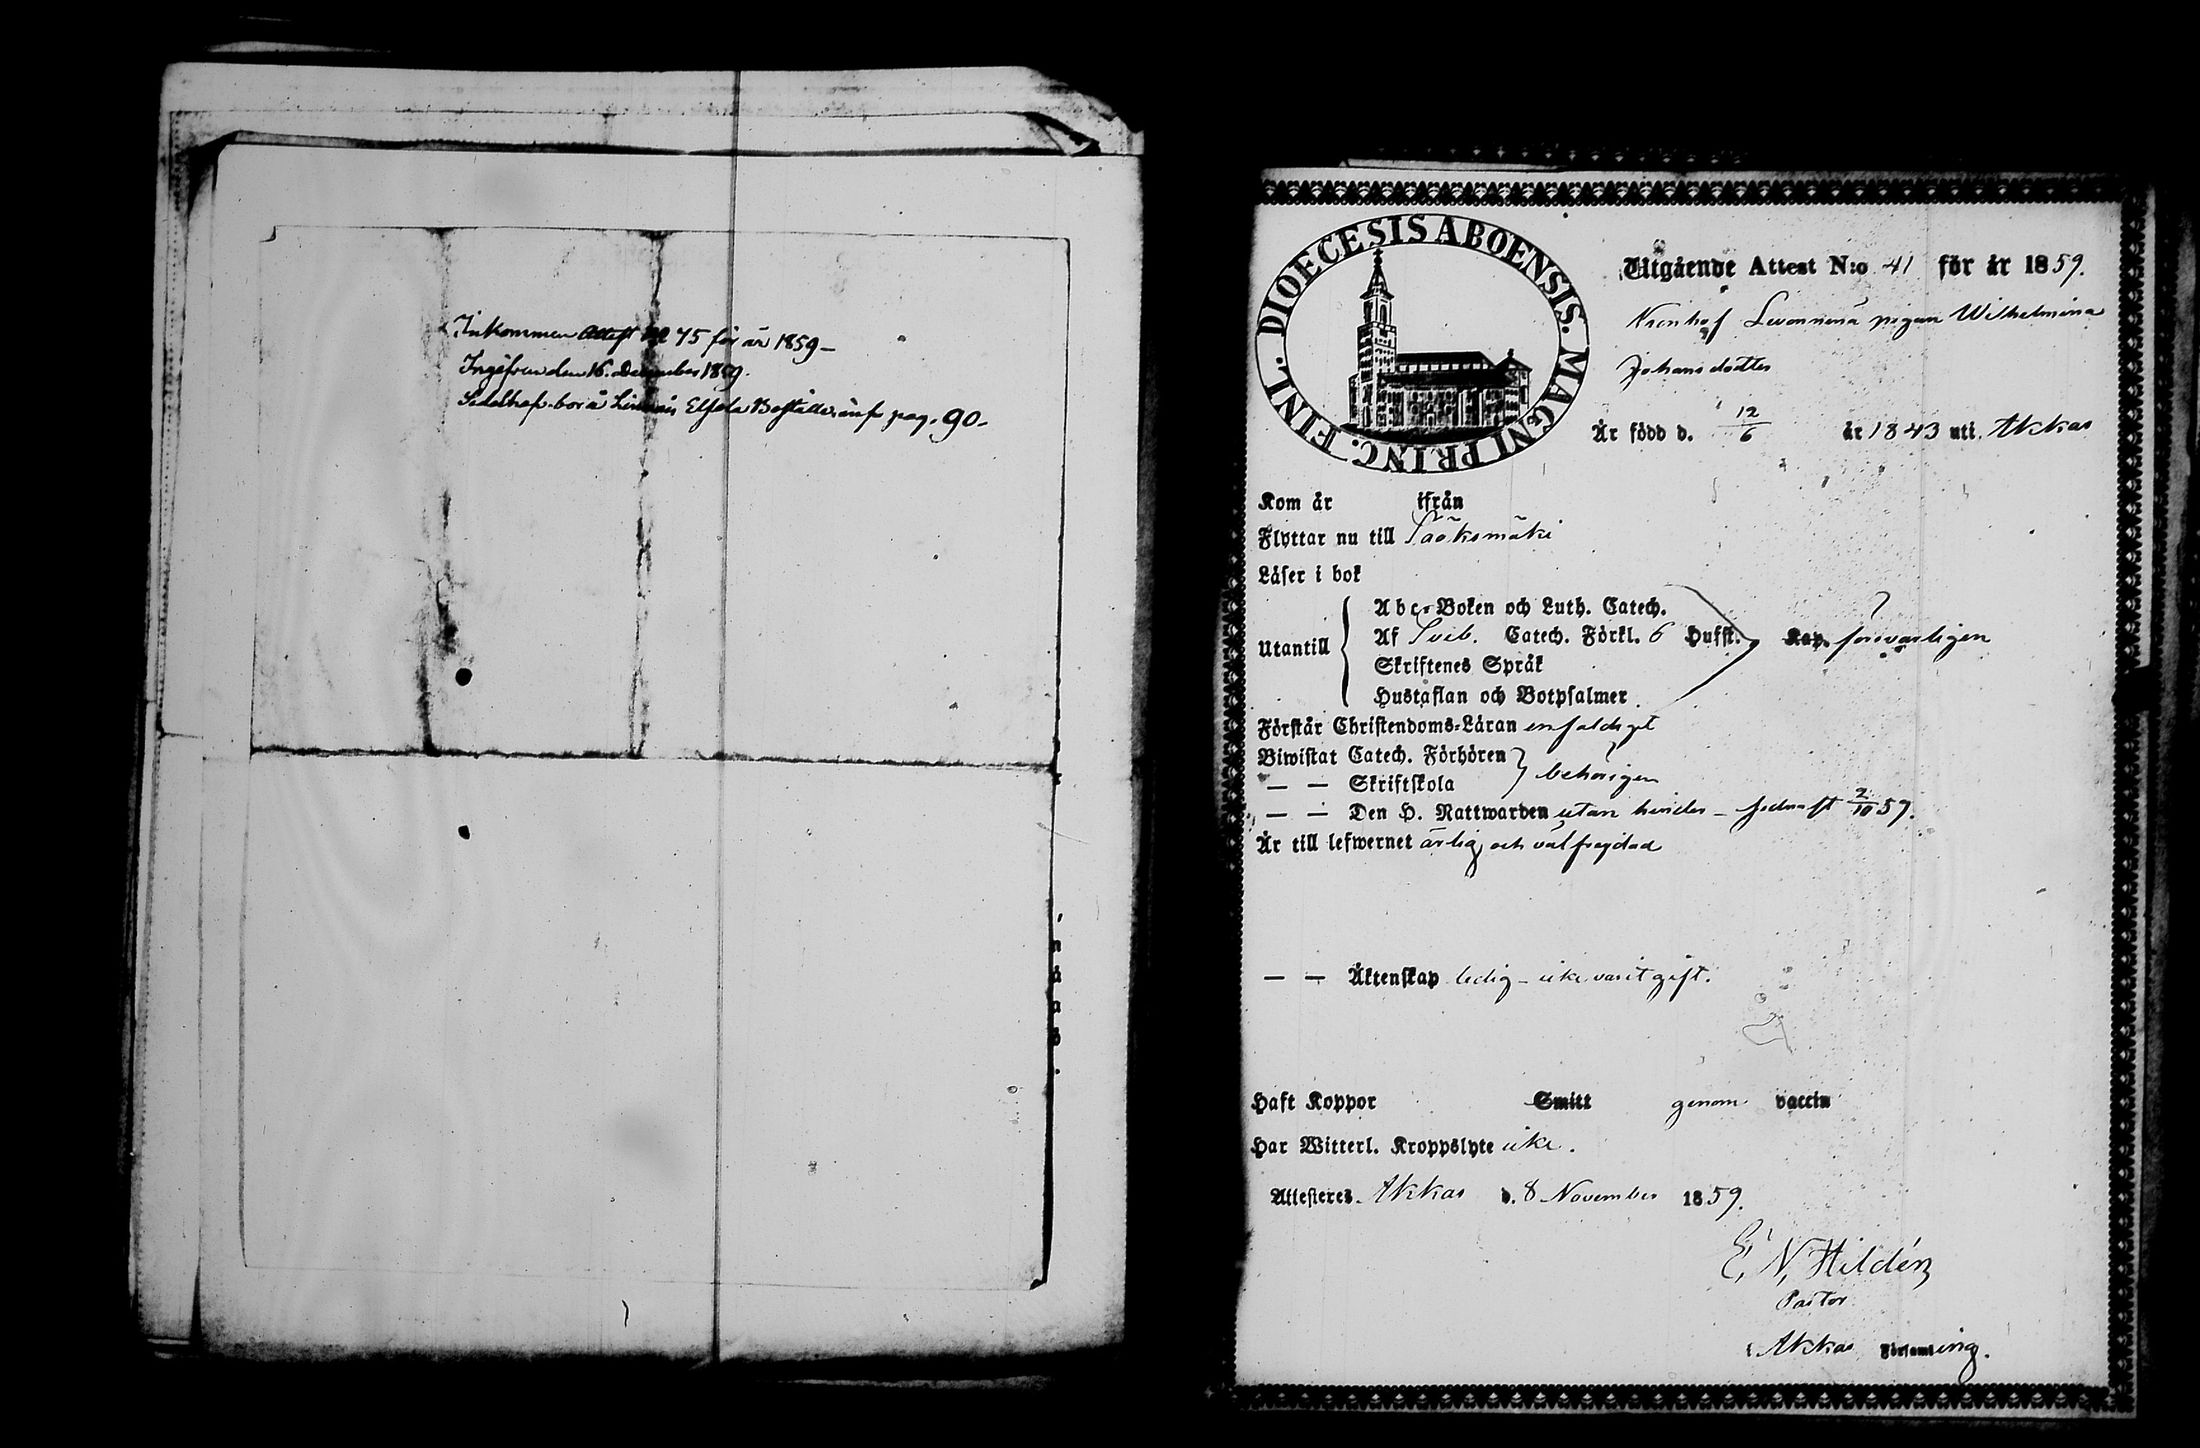 Inkommen Attest No 45 för år 1859 –
Ingifven den 16. December 1859.
Sedelhaf. bor å Elfola Boställe, inf. pag. 90.
DIOECESIS ABOENSIS. MAGNI PRINC. FINL.
Utgående Attest N:o 41 för år 1859.
pigan Wilhelmina
Johansdotter
Är född d. 12/6 år 1843 uti Akkas
Kom år ifrån
Flyttar nu till Sääksmäki
Läser i bok
Utantill
Abc-Boken och Luth. Catech.
Af Sveb. Catech. Förkl. 6 Hufst. Kap. försvarligen
Skriftenes Språk
Hustaflan och Botpsalmer
Förstår Christendoms-Läran enfaldigt
Biwistat Catech. Förhören
— — Skriftskola behörigen
— — Den H. Nattwarden utan hinder – sednast 2/10 59.
Är till lefwernet ärlig och välfrejdad
— — Äktenskap ledig – icke varit gift.
Haft Koppor Smitt genom vaccin
Har Witterl. Kroppslyte icke.
Attesteres. Akkas d. 8 November 1859.
E. N. Hildén
Pastor
i Akkas Församling.